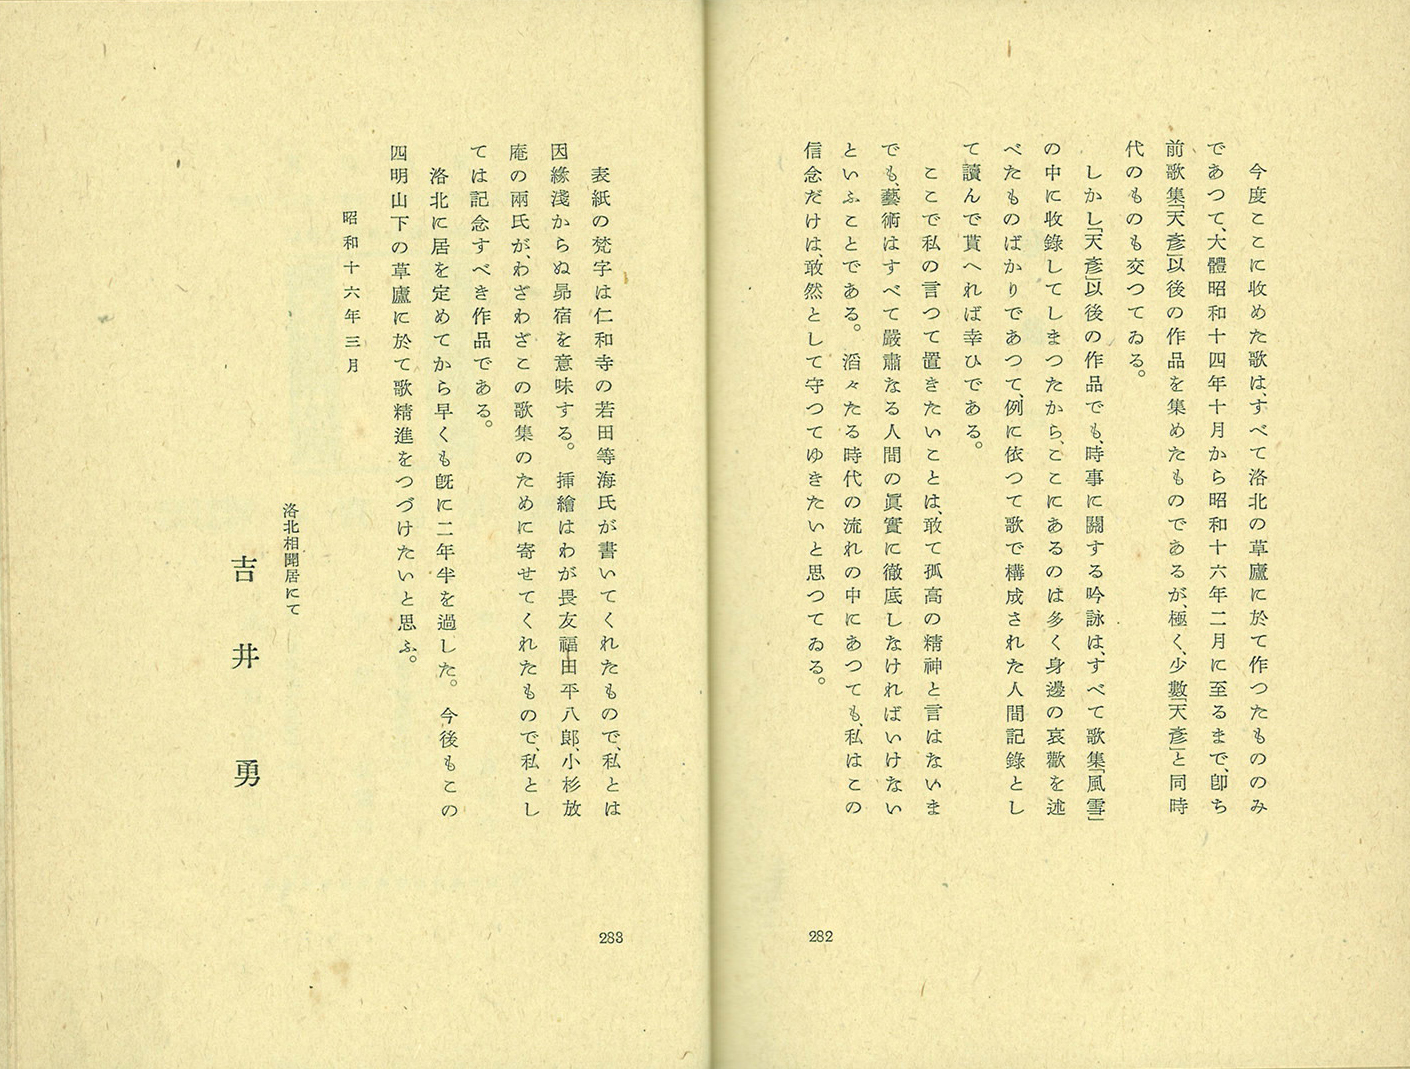 今度ここに收めた歌は、すべて洛北の草廬に於て作つたもののみ
であつて、大體昭和十四年十月から昭和十六年二月に至るまで、卽ち
前歌集「天彥」以後の作品を集めたものであるが、極く、少數「天彥」と同時
代のものも交つてゐる。
しかし「天彥」以後の作品でも、時事に關する吟詠は、すべて歌集「風雪」
の中に收錄してしまつたから、ここにあるのは多く身邊の哀歡を述
べたものばかりであつて、例に依つて歌で構成された人間記錄とし
て讀んで貰へれば幸ひである。
ここで私の言つて置きたいことは、敢て孤高の精神と言はないま
でも、藝術はすべて嚴肅なる人間の眞實に徹底しなければいけない
といふことである。滔々たる時代の流れの中にあつても、私はこの
信念だけは、敢然として守つてゆきたいと思つてゐる。
282
表紙の梵字は仁和寺の若田等海氏が書いてくれたもので、私とは
因緣淺からぬ昴宿を意味する。揷繪はわが畏友福田平八郞、小杉放
庵の兩氏が、わざわざこの歌集のために寄せてくれたもので、私とし
ては記念すべき作品である。
洛北に居を定めてから早くも旣に二年半を過した。今後もこの
四明山下の草廬に於て歌精進をつづけたいと思ふ。
昭和十六年三月
洛北相聞居にて
吉井勇
283